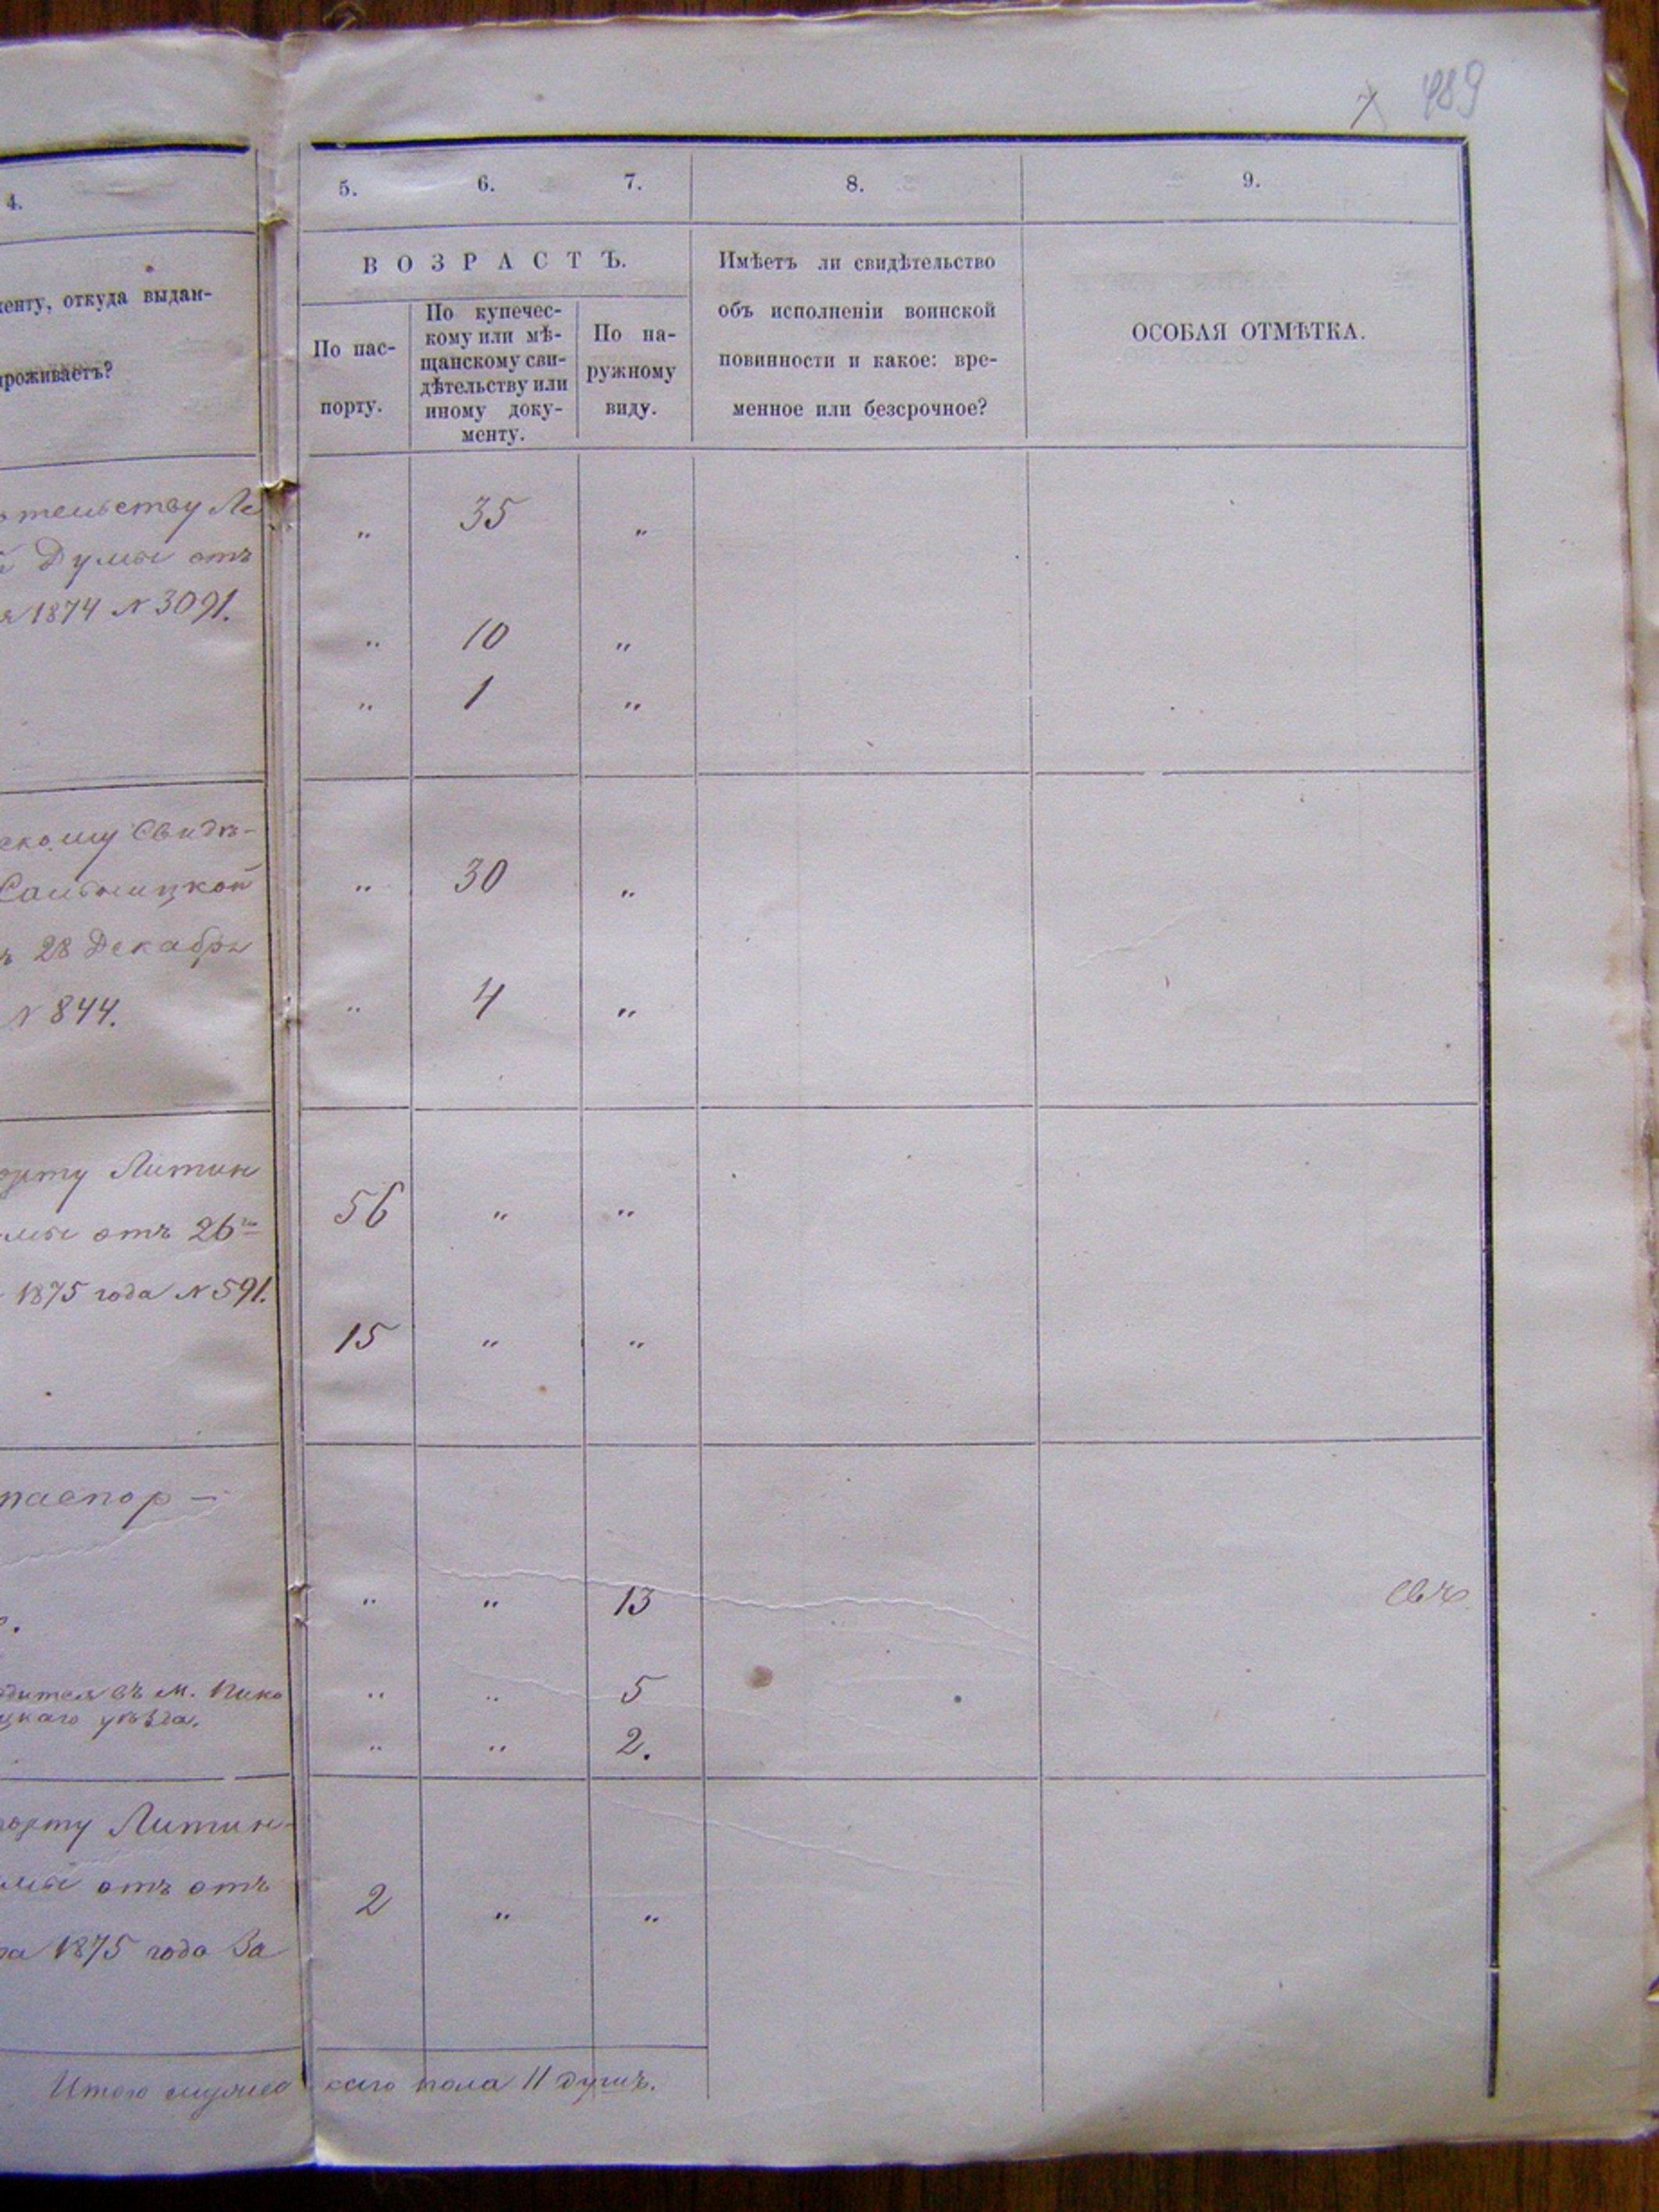 489
4.
5. 6. 7. 8. 9.
ВОЗРАСТЪ.
менту, откуда выдан-
проживаетъ?
По пас-
порту.
По купечес-
кому или мѣ-
щанскому сви-
дѣтельству или
иному доку-
менту.
По на-
ружному
виду.
Имѣетъ ли свидѣтельство
объ исполненіи воинской
повинности и какое: вре-
менное или безсрочное?
ОСОБАЯ ОТМѢТКА.
тельству Ли
Думы отъ
1874 № 3091.
„ 35 „
„ 10 „
„ 1 „
скому Свидѣ-
Сальницкой
28 Декабря
№ 844.
„ 30 „
„ 4 „
порту Литин
мы отъ 26го
1875 года № 591.
56 „ „
15 „ „
паспор-
дится въ м. Пико
цкаго уѣзда.
„ „ 13
„ „ 5
„ „ 2.
порту Литин-
мы отъ отъ
ра 1875 года За
2 „ „
Итого мужес каго пола 11 душъ.